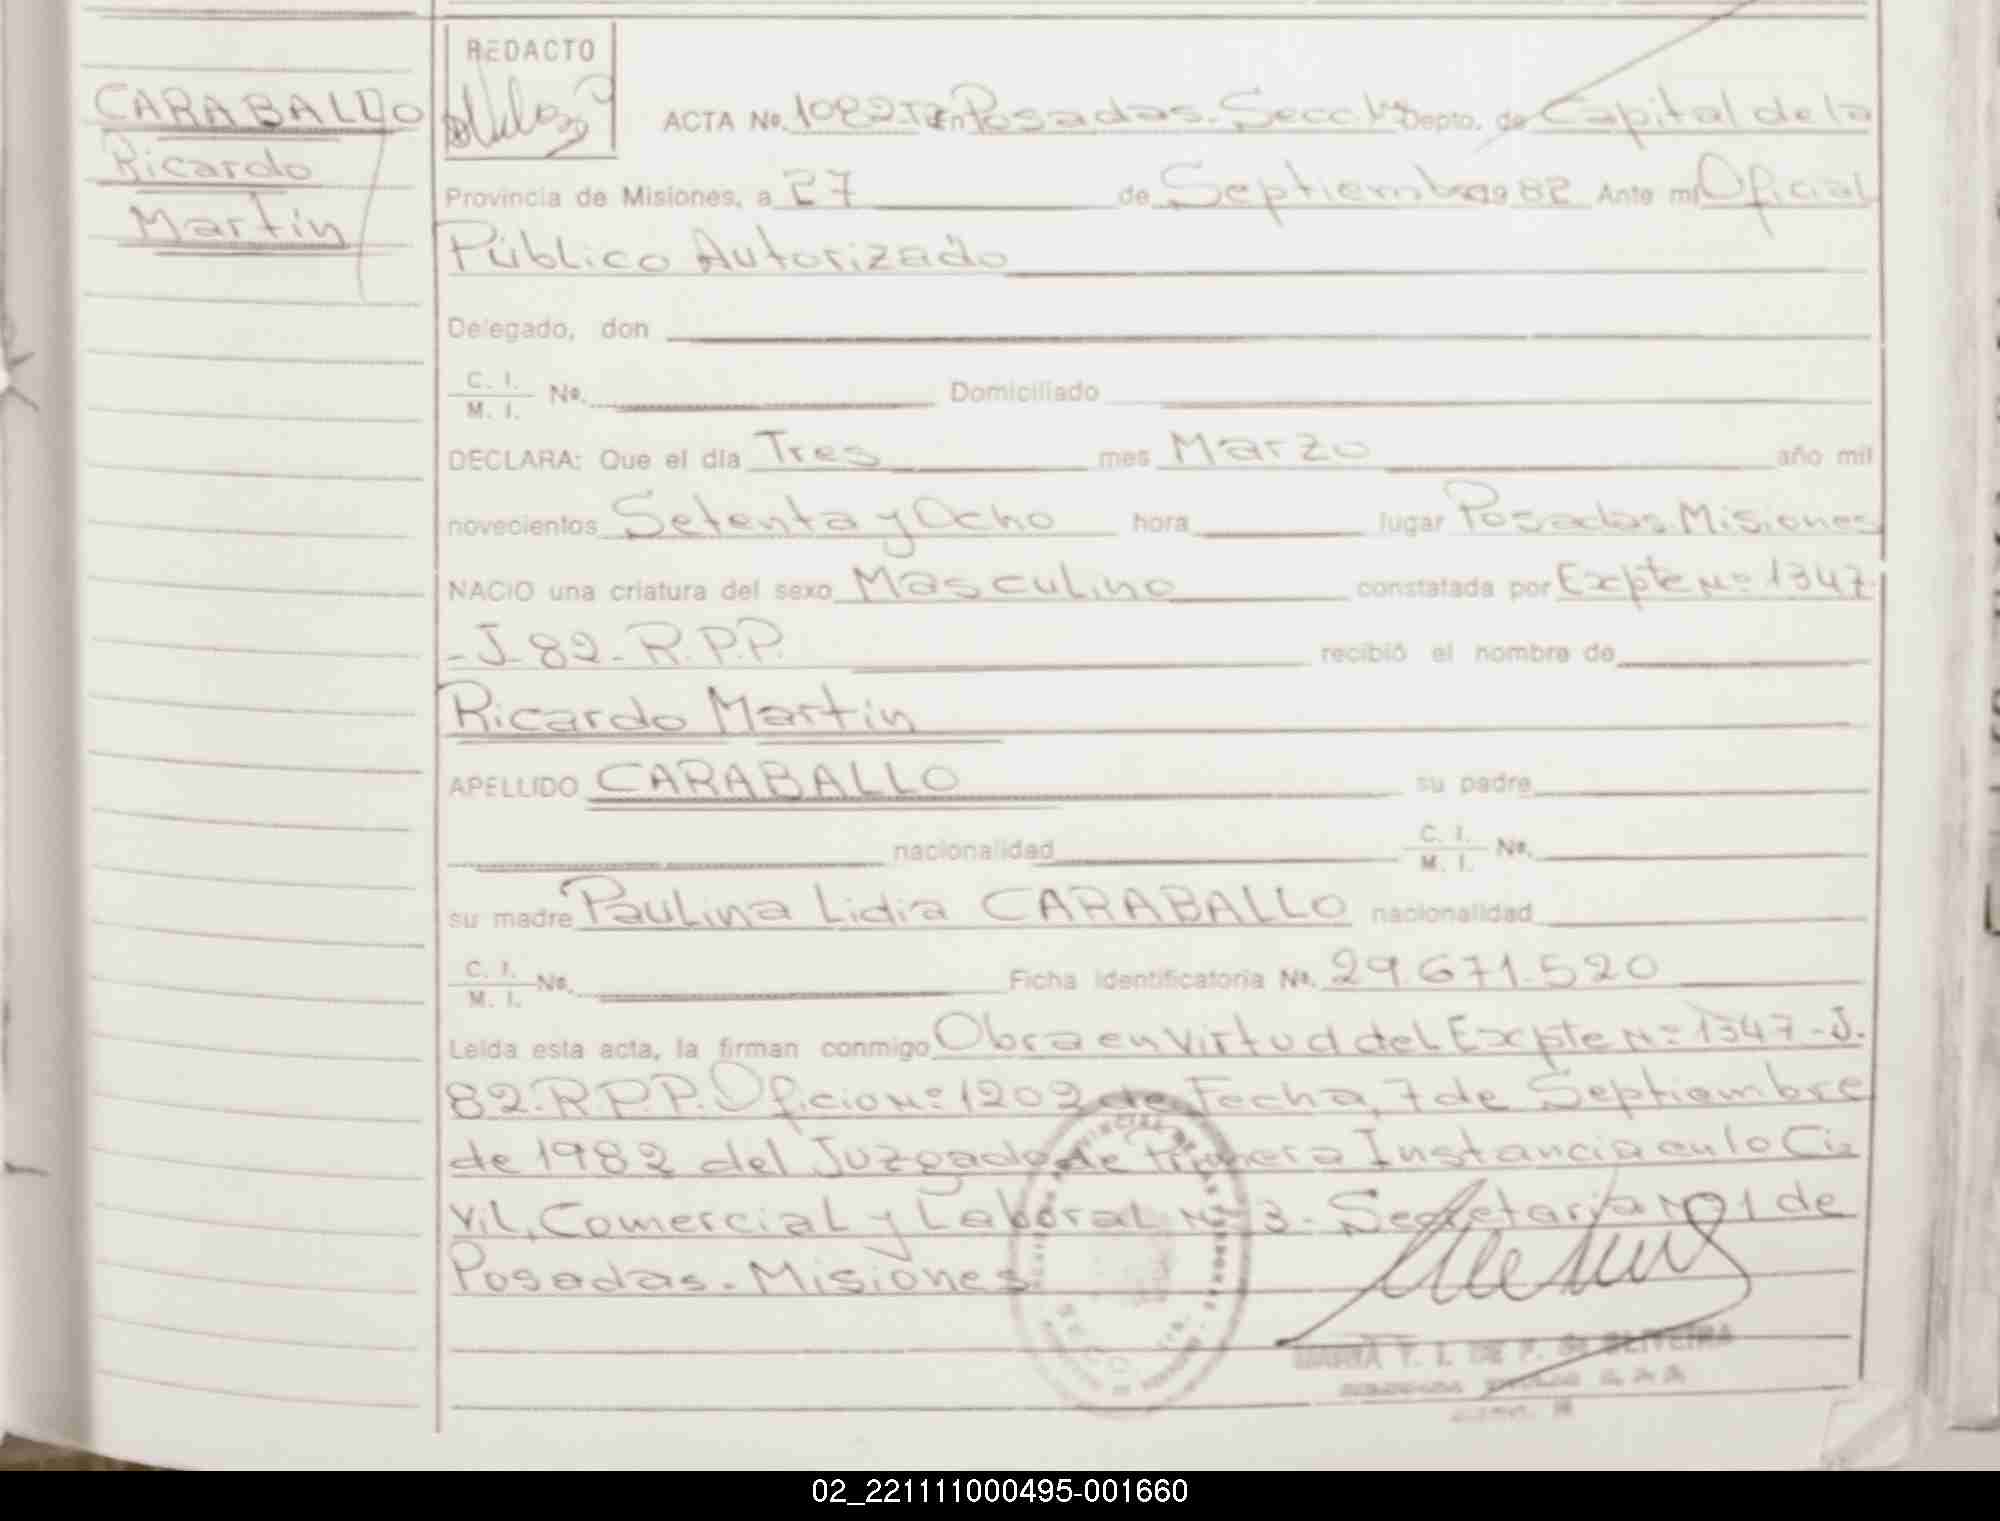 CARABALLO
Ricardo
Martín
REDACTO
ACTA No. 1082 En Posadas. Secc. Depto. de Capital de la
Provincia de Misiones, a 27 de Septiembre 1982 Ante mi Oficial
Público Autorizado
Delegado, don
C. I.
M. I. No. Domiciliado
DECLARA: Que el día Tres mes Marzo año mil
novecientos Setenta y Ocho hora lugar Posadas. Misiones
NACIO una criatura del sexo Masculino constatada por Expte Nº 1347
-J-82-R.P.P. recibió el nombre de
Ricardo Martín
APELLIDO CARABALLO su padre
nacionalidad C. I.
M. I. No.
su madre Paulina Lidia CARABALLO nacionalidad
C. I.
M. I. No. Ficha Identificatoria No. 29.671.520
Leida esta acta, la firman conmigo Obra en virtud del Expte Nº 1347-J.
82.R.P.P. Oficio Nº 1202 de Fecha, 7 de Septiembre
de 1982 del Juzgado de Primera Instancia en lo Ci
vil, Comercial y Laboral Nº 3. Secretaría Nº 1 de
Posadas. Misiones
PROVINCIAL DE LAS PERSONAS
MARIA T. I. DE F. DE OLIVEIRA
02_221111000495-001660